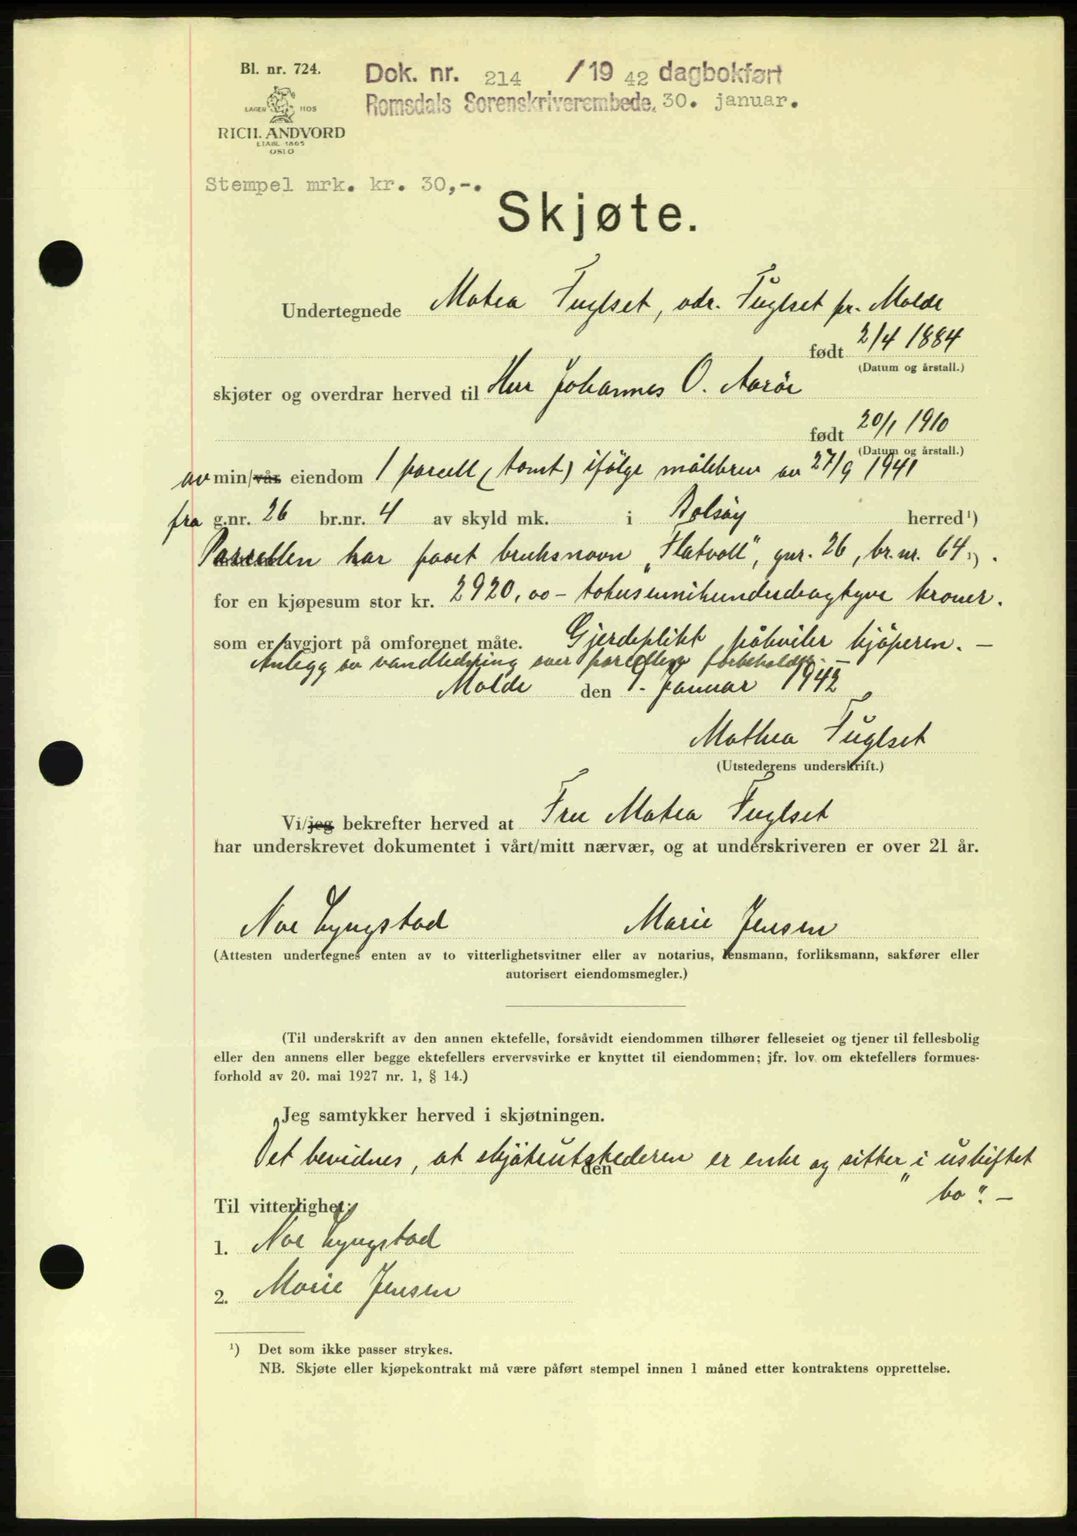 Bl. nr. 724.
Dok. nr. 214 /19 42 dagbokført
LAGER 1105
Romsdals Sorenskriverembede, 30. januar.
RICH. ANDVORD
ETABL. 1865
OSLO
Stempel mrk. kr. 30,-.
Skjøte.
Undertegnede Matea Fuglset, adr. Fuglset pr. Molde
født 2/4 1884
(Datum og årstall.)
skjøter og overdrar herved til Herr Johannes O. Aarøe
født 20/1 1910
(Datum og årstall.)
av min/vår eiendom 1 parcell (tomt) ifølge målebrev av 27/9 1941
fra g.nr. 26 br.nr. 4 av skyld mk. i Bolsøy herred¹)
Parcellen har faaet bruksnavn „Flatvoll“, gnr. 26, br. nr. 64 ¹).
for en kjøpesum stor kr. 2920,00 – totusennihundredeogtyve kroner.
som er avgjort på omforenet måte. Gjerdeplikt påhviler kjøperen. –
Anlegg av vandledning over parcellen forbeholdes. –
Molde den 9. Januar 1942
Mathea Fuglset
(Utstederens underskrift.)
Vi/jeg bekrefter herved at Fru Matea Fuglset
har underskrevet dokumentet i vårt/mitt nærvær, og at underskriveren er over 21 år.
Noe Lyngstad Marie Jensen
(Attesten undertegnes enten av to vitterlighetsvitner eller av notarius, lensmann, forliksmann, sakfører eller
autorisert eiendomsmegler.)
(Til underskrift av den annen ektefelle, forsåvidt eiendommen tilhører felleseiet og tjener til fellesbolig
eller den annens eller begge ektefellers ervervsvirke er knyttet til eiendommen; jfr. lov om ektefellers formues-
forhold av 20. mai 1927 nr. 1, § 14.)
Jeg samtykker herved i skjøtningen.
Det bevidnes, at skjøteutstederen er enke og sitter „i uskiftet
den
bo“. –
Til vitterlighet:
1. Noe Lyngstad
2. Marie Jensen
¹) Det som ikke passer strykes.
NB. Skjøte eller kjøpekontrakt må være påført stempel innen 1 måned etter kontraktens opprettelse.